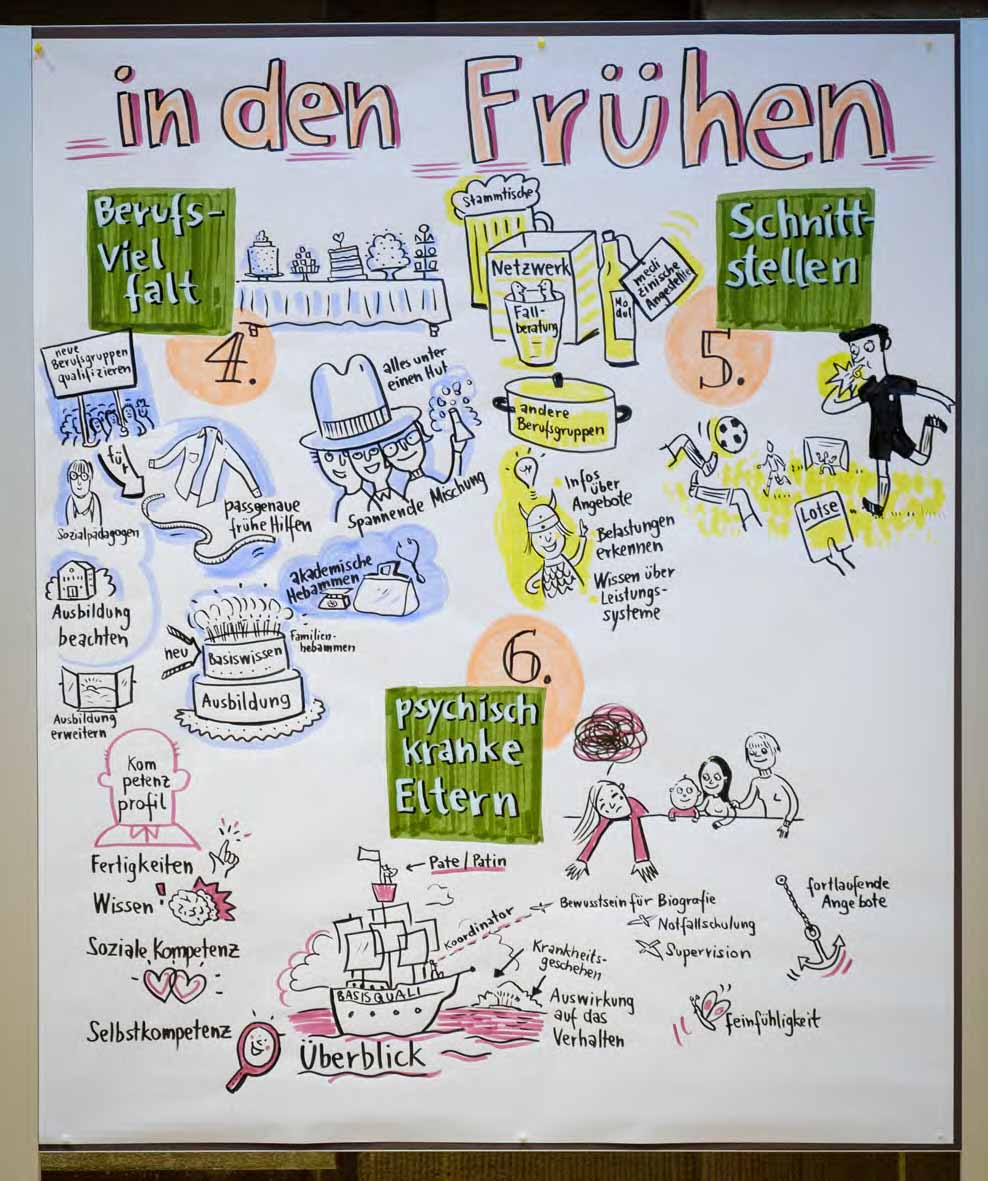 in den Frühen
Berufs-
Viel
falt
4.
neue
Berufsgruppen
qualifizieren
für
Sozialpädagogen
passgenaue
frühe Hilfen
alles unter
einen Hut
Spannende Mischung
akademische
Hebammen
Ausbildung
beachten
Ausbildung
erweitern
neu
Basiswissen
Ausbildung
Familien-
hebammen
Stammtische
Netzwerk
Fall-
beratung
Mo
dul
medi
zinische
Angestellte
Schnitt-
stellen
5.
andere
Berufsgruppen
Infos
über
Angebote
Belastungen
erkennen
Wissen über
Leistungs-
systeme
Lotse
6.
psychisch
kranke
Eltern
Kom
petenz
profil
Fertigkeiten
Wissen
Soziale Kompetenz
Selbstkompetenz
Pate/Patin
Koordinator
BASISQUALI
Überblick
Bewusstsein für Biografie
Notfallschulung
Supervision
Krankheits-
geschehen
Auswirkung
auf das
Verhalten
fortlaufende
Angebote
feinfühligkeit